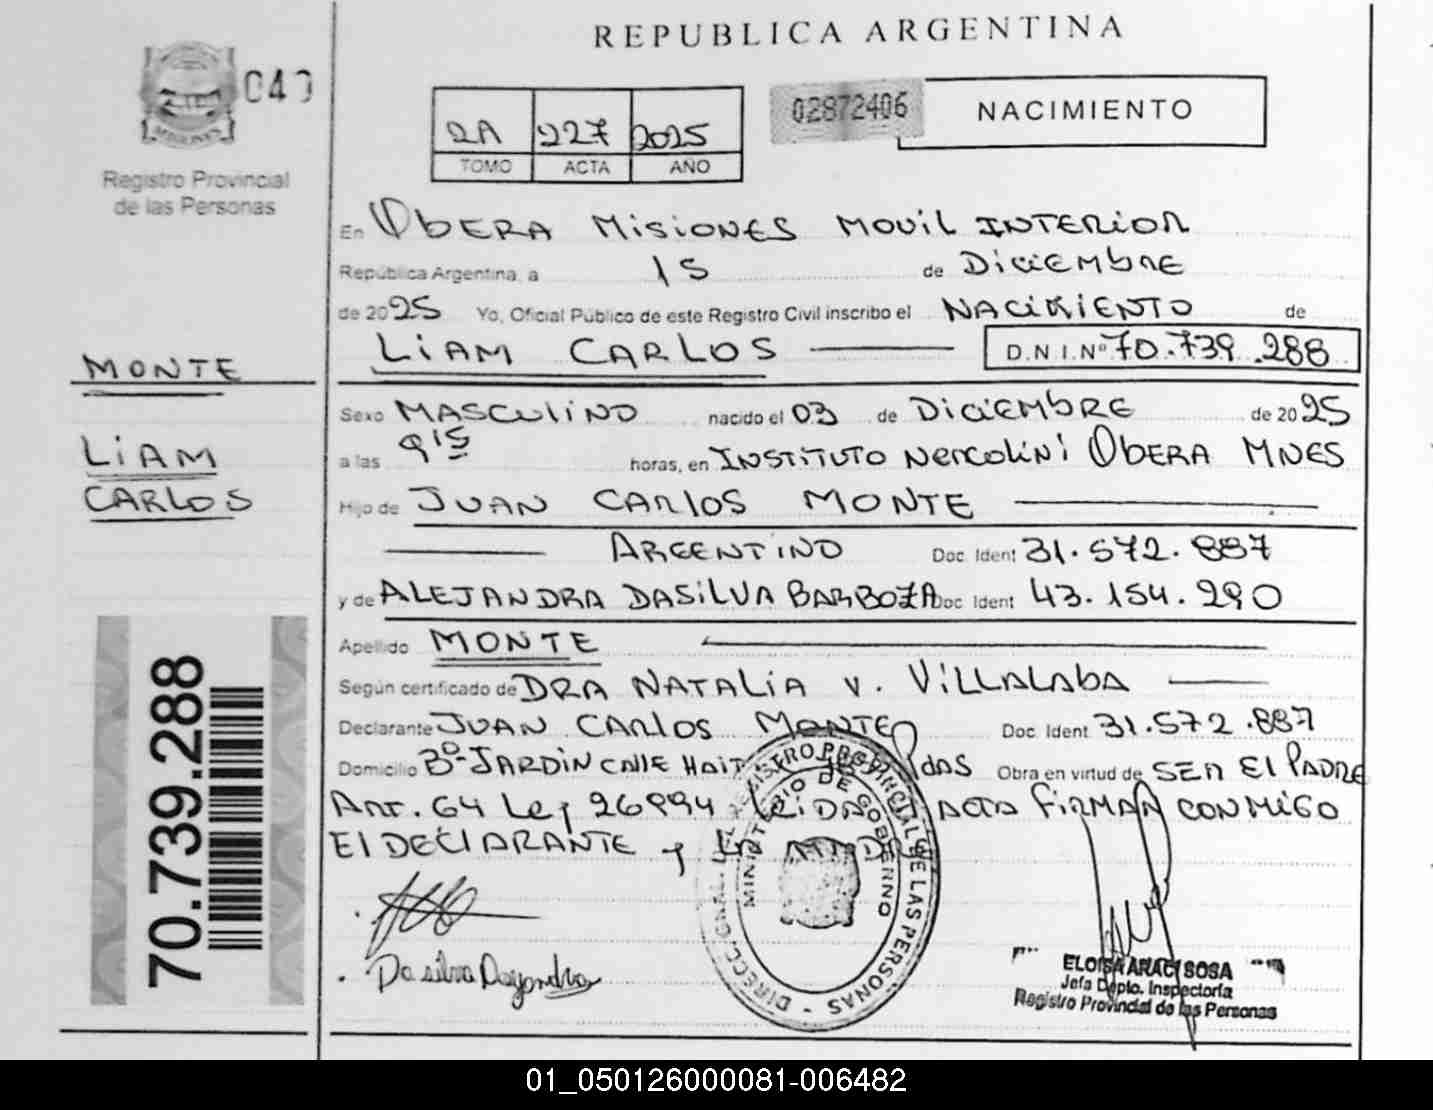 REPUBLICA ARGENTINA
040
MISIONES
Registro Provincial
de las Personas
2A 227 2025
TOMO ACTA AÑO
02872406
NACIMIENTO
En ObERA MisiONES MOVIL INTERIOR
República Argentina, a 15 de DiciEMbRE
de 2025 Yo, Oficial Público de este Registro Civil inscribo el NACIMIENTO de
LiAM CARLOS D.N.I.Nº 70.739.288
MONTE
LiAM
CARLOS
Sexo MASCULINO nacido el 03 de DiCiEMbRE de 2025
a las 9:15 horas, en INSTITUTO NERCOLiNi ObERA MNES
Hijo de JUAN CARLOS MONTE
ARGENTINO Doc. Ident 31.572.887
y de ALEJANDRA DASiLVA BARBOZA Doc. Ident 43.154.290
Apellido MONTE
Según certificado de DRA NATALiA V. ViLLALAbA
Declarante JUAN CARLOS MONTE Doc. Ident 31.572.887
Domicilio Bº JARDIN CAllE HAITI Pdas Obra en virtud de SER El PADRE
ART. 64 LEy 26994 LEiDA ACTA FiRMAN CONMiGO
El DECLARANTE y LA MADRE
DIRECC. GRAL. DEL REGISTRO PROVINCIAL DE LAS PERSONAS
MINISTERIO DE GOBIERNO
Da silva
ELOISA ARACI SOSA
Jefa Dpto. Inspectoría
Registro Provincial de las Personas
70.739.288
01_050126000081-006482